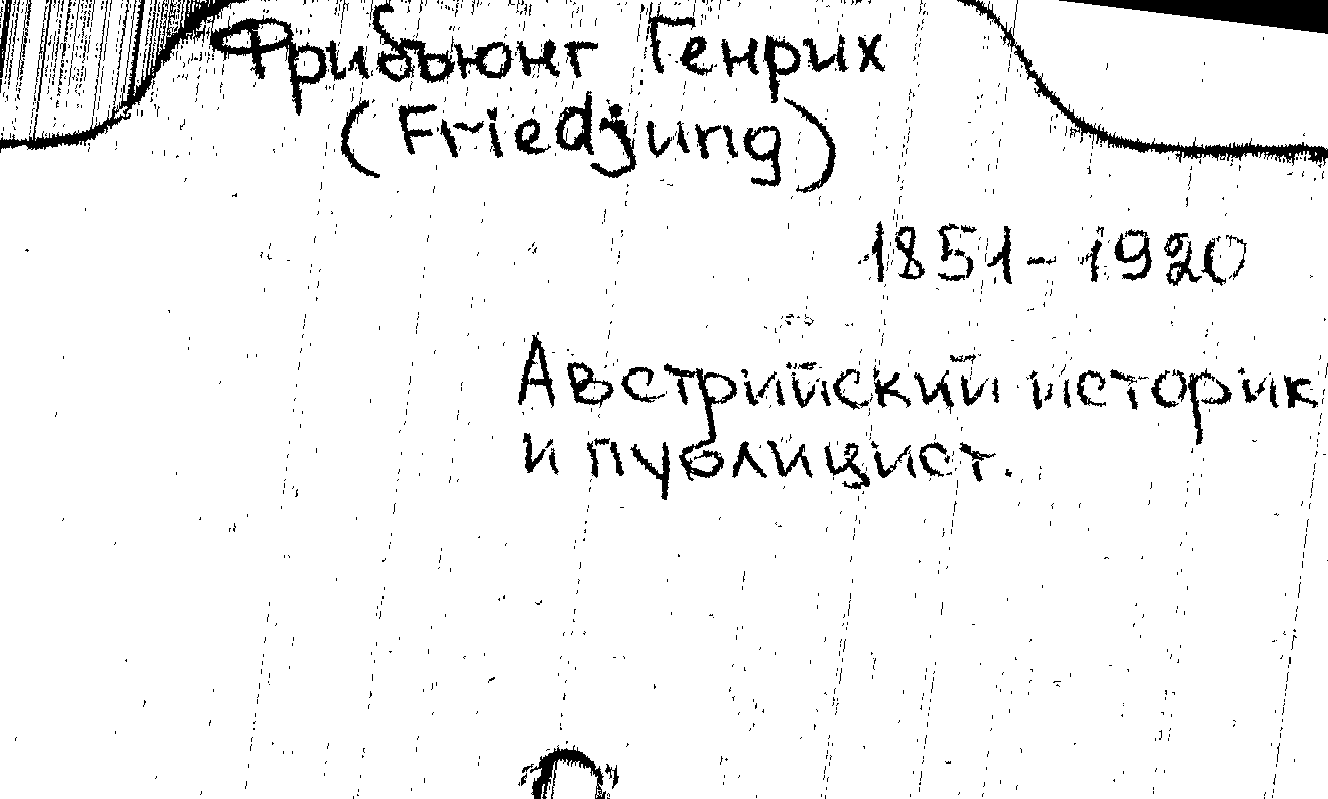 Фрибьюнг Генрих
(Friedjung)
1851-1920
Австрийский историк
и публицист.